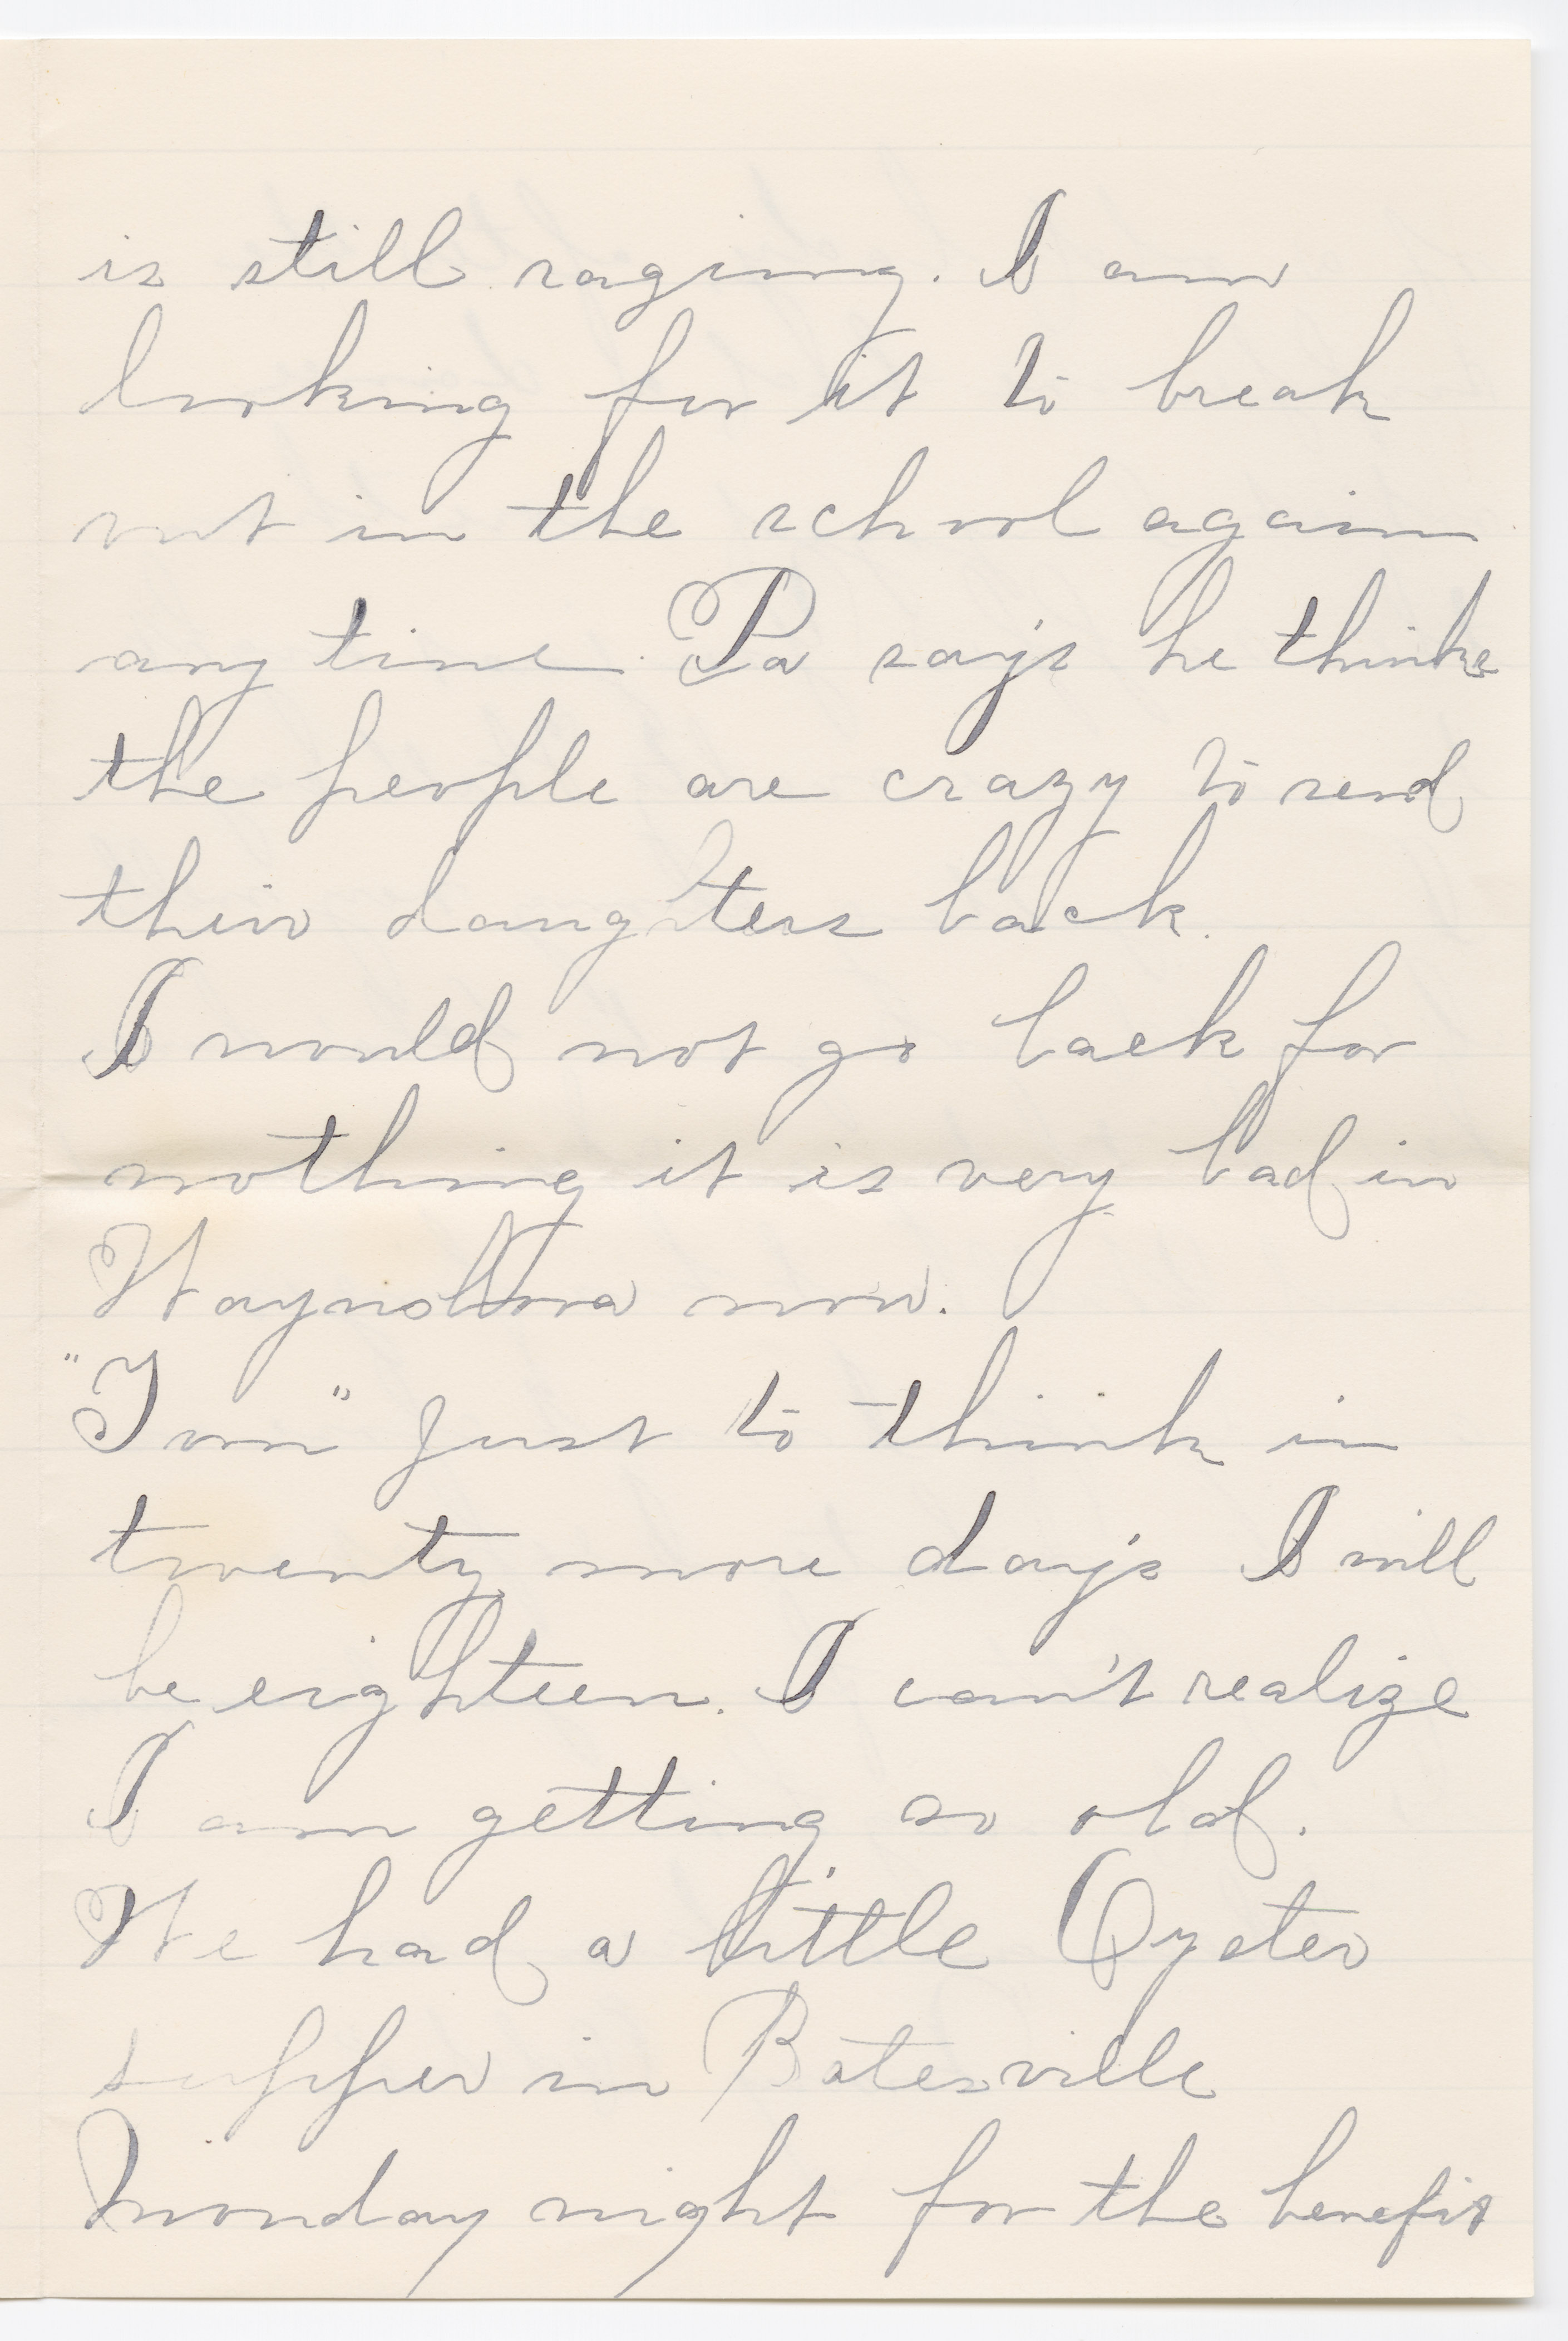 is still raging. I am
looking for it to break
out in the school again
any time. Pa say's he thinks
the people are crazy to send
thier daughters back.
I would not go back for
nothing it is very bad in
Waynesboro now.
"Tom" Just to think in
twenty more day's I will
be eighteen. I can't realize
I am getting so old.
We had a little Oyster
supper in Batesville
Monday night for the benefit